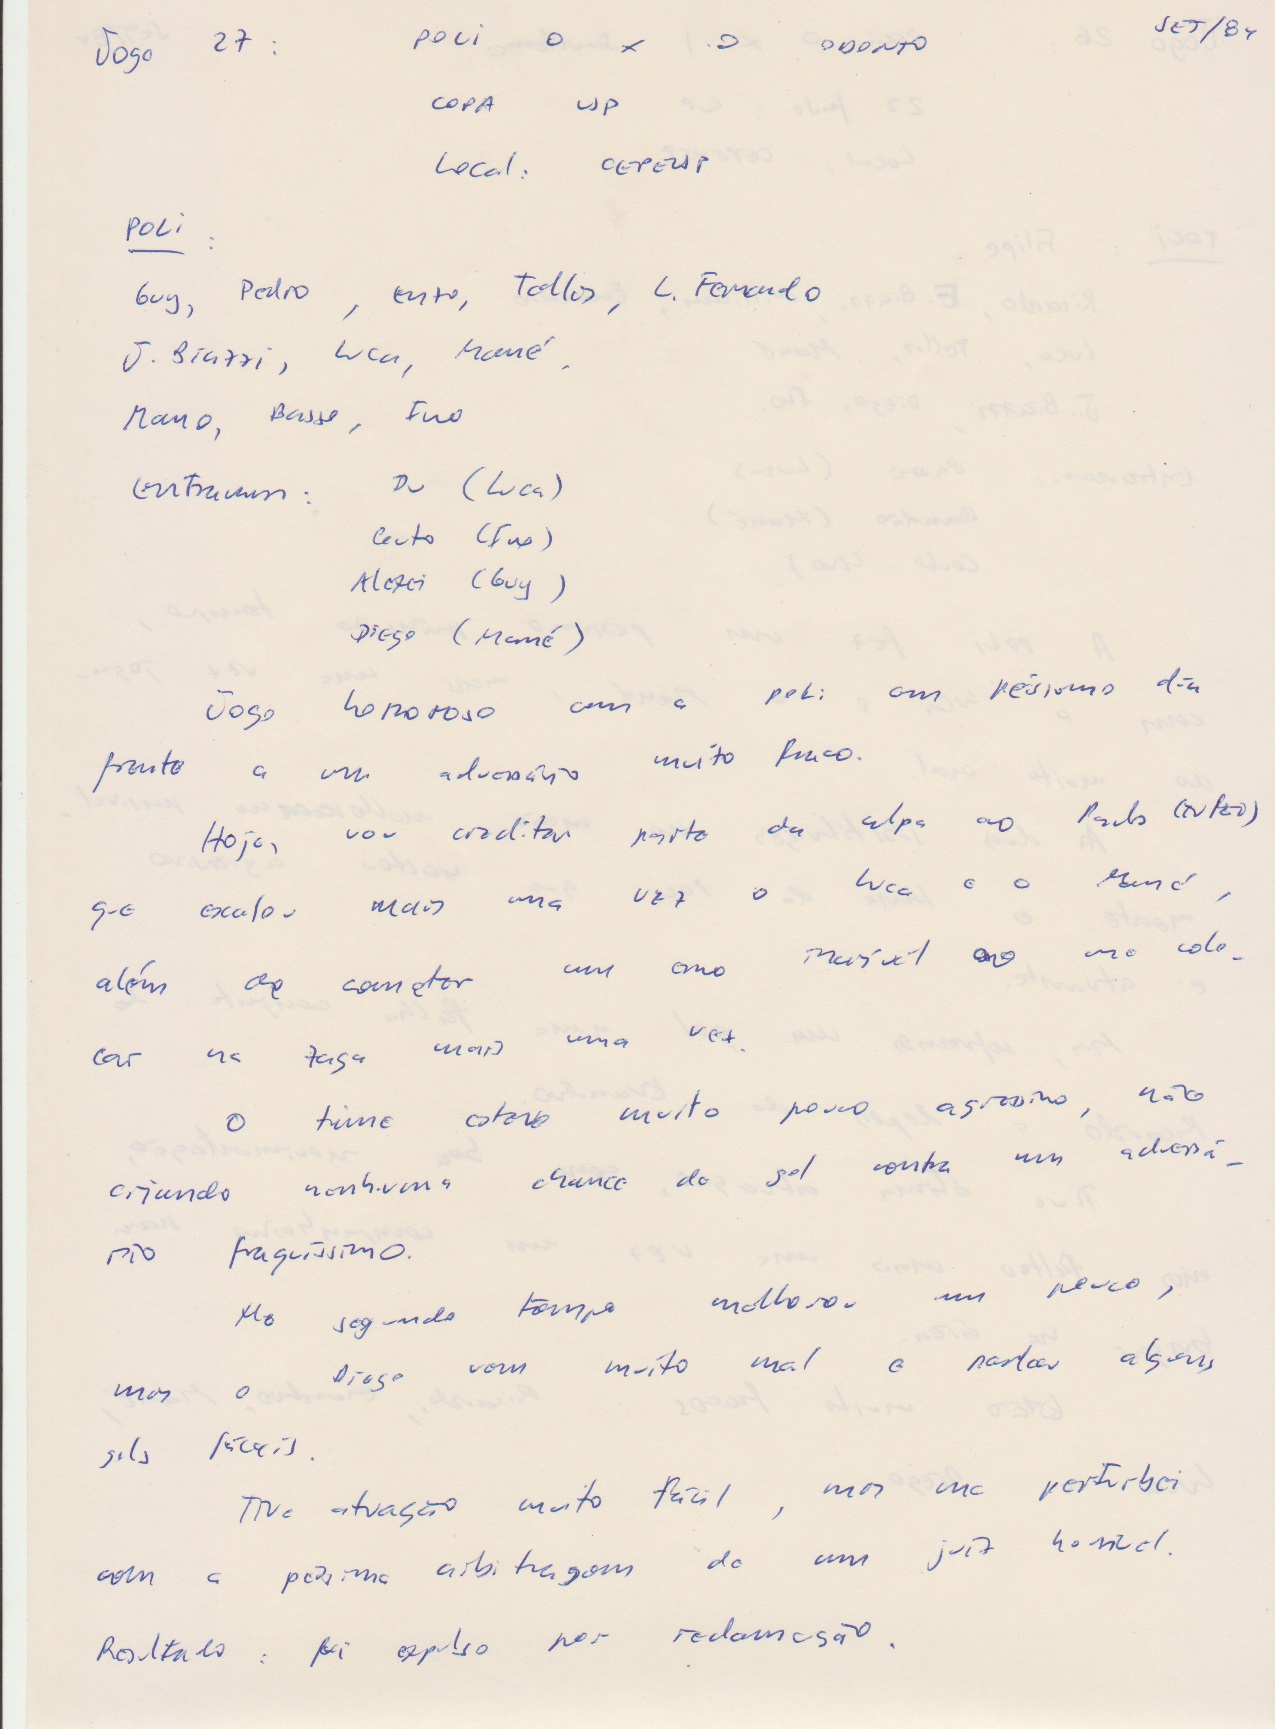 Jogo 27: POLI 0 x 0 ODONTO SET/84
COPA USP
Local: CEPEUSP
POLI:
Guy, Pedro, Enzo, Tallis, L. Fernando
J. Biazzi, Luca, Mané,
Mano, Basso, Ivo
Entraram: Du (Luca)
Couto (Ivo)
Alexei (Guy)
Diego (Mané)
Jogo horroroso com a poli em péssimo dia
frente a um adversário muito fraco.
Hoje, vou creditar parte da culpa ao Paulo
que escalou mais uma vez o Luca e o Mané,
além de cometer um erro incrível ao me colo-
car na zaga mais uma vez.
O time esteve muito pouco agressivo, não
criando nenhuma chance de gol contra um adversá-
rio fraquíssimo.
No segundo tempo melhorou um pouco,
mas o Diego vem muito mal e perdeu alguns
gols fáceis.
Tive atuação muito fácil, mas me perturbei
com a péssima arbitragem de um juiz horrível.
Resultado: fui expulso por reclamação.